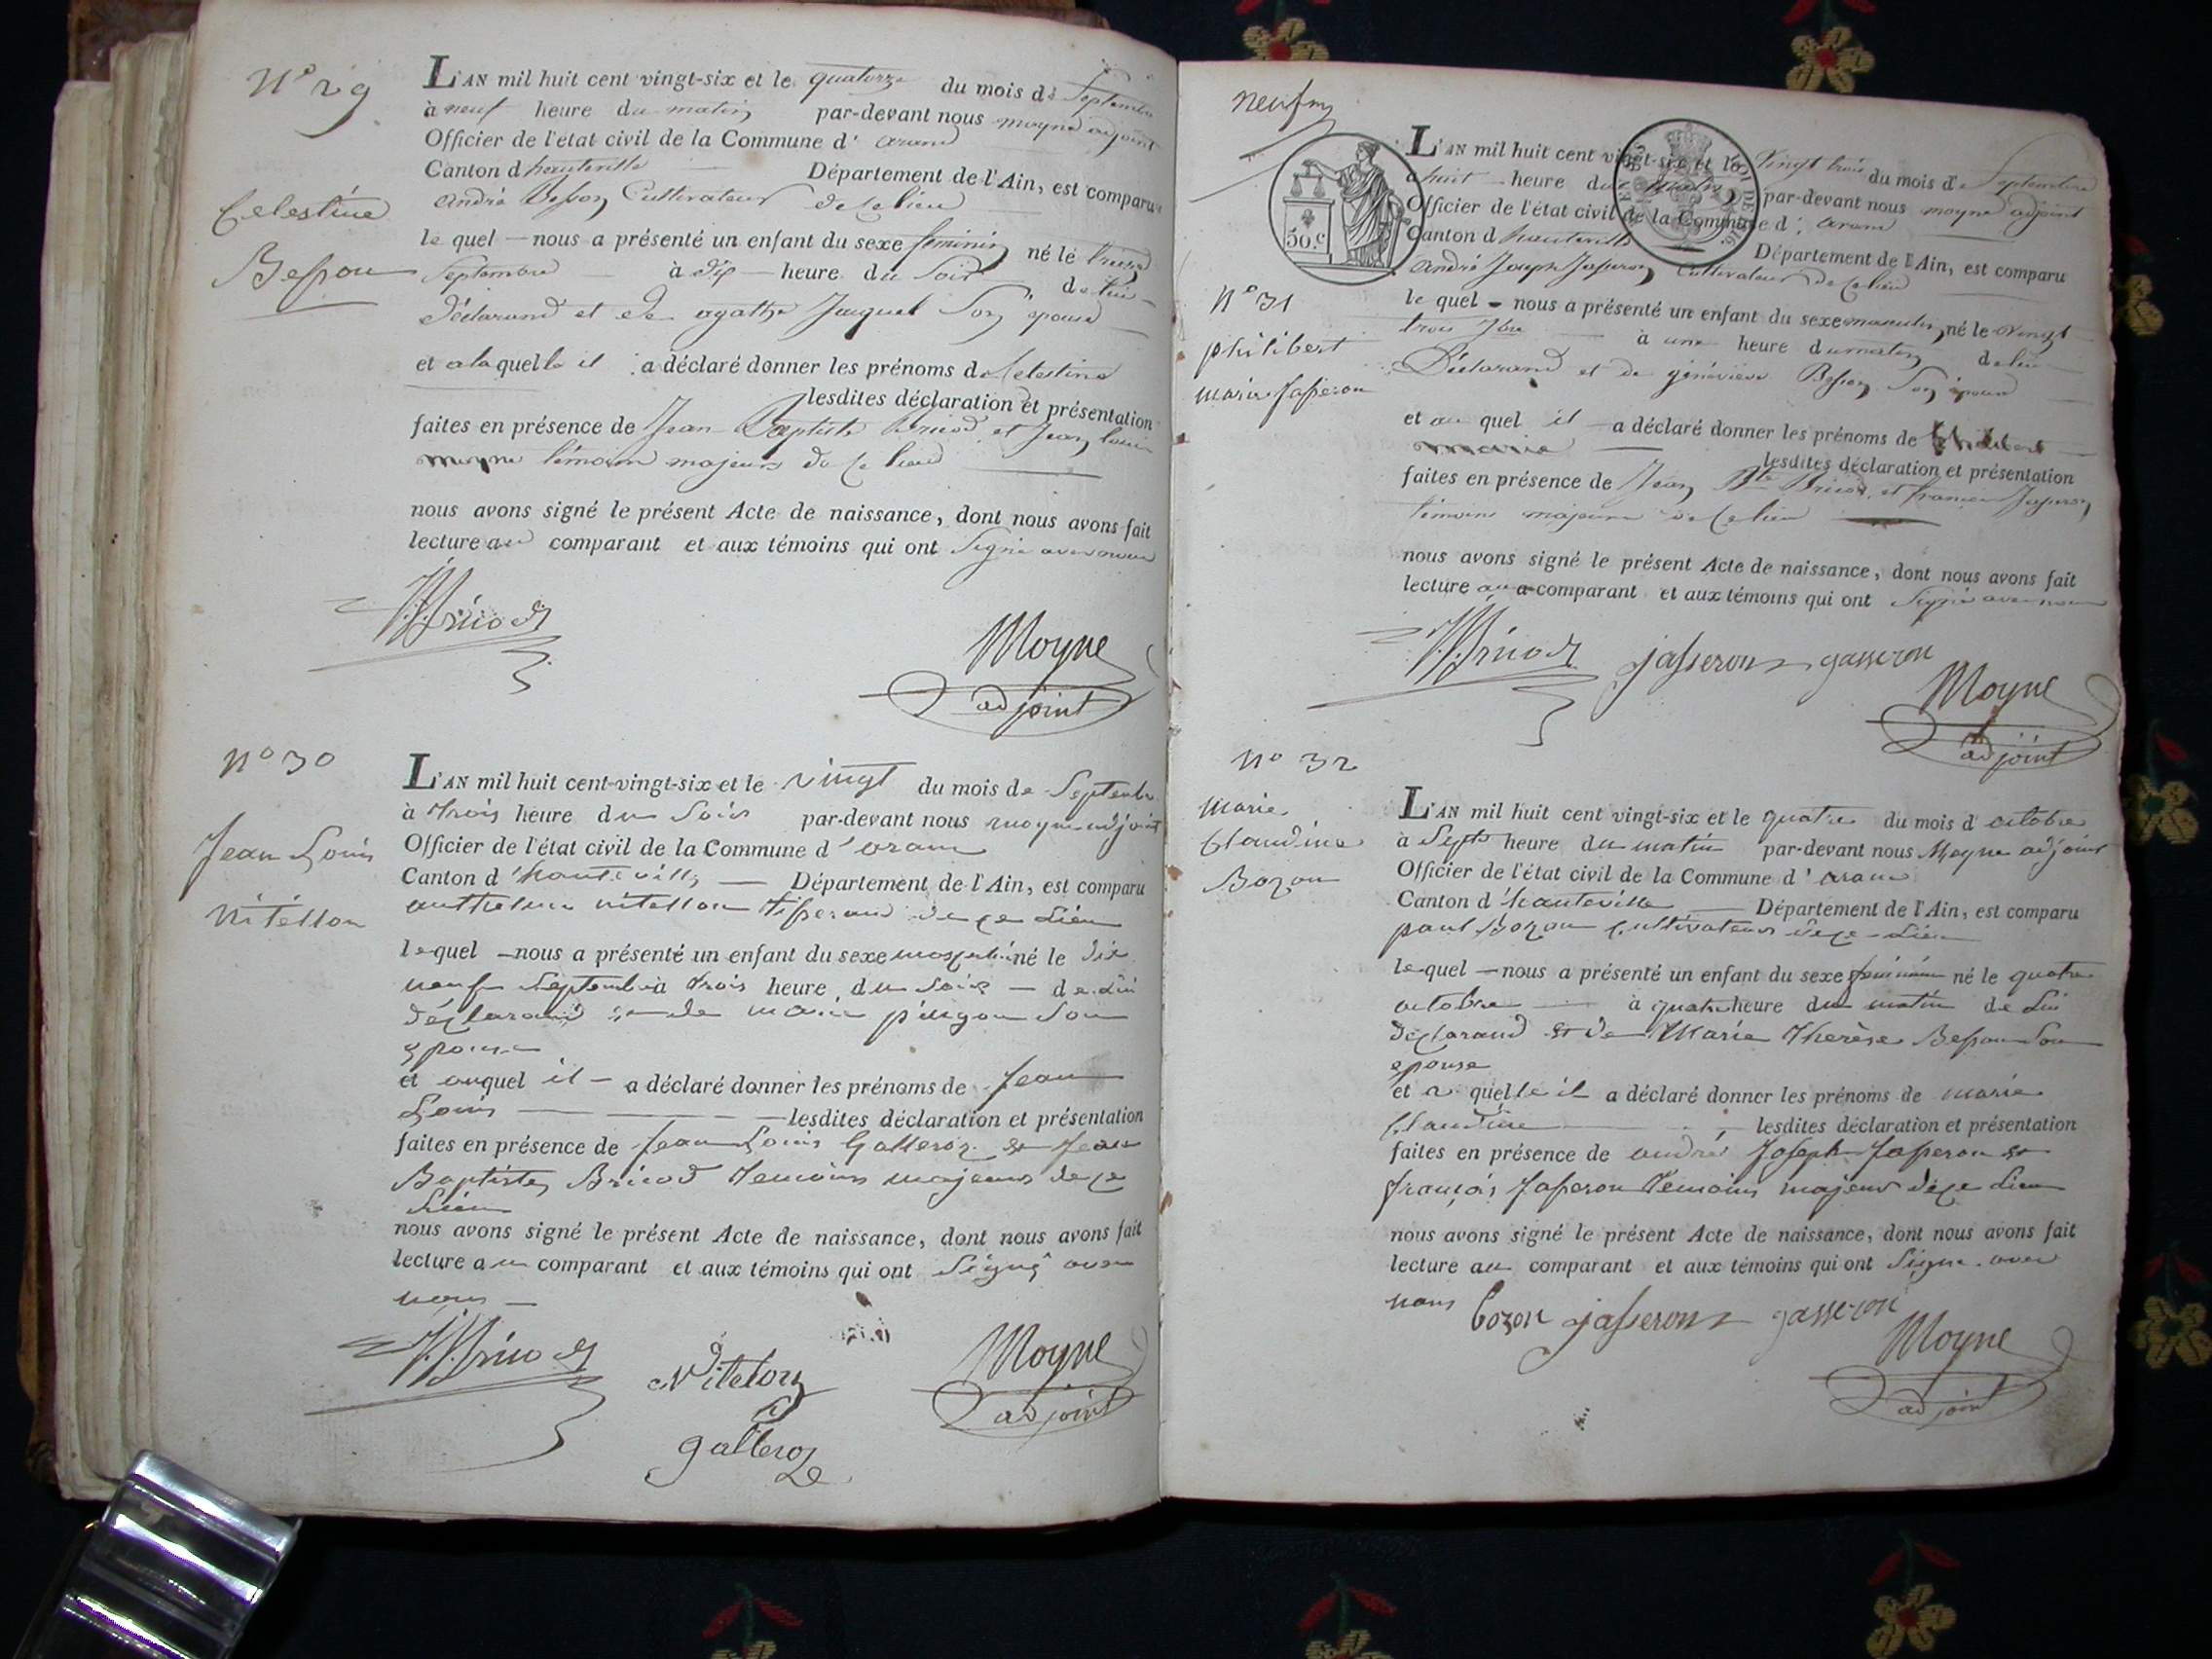 N° 29
Celestine
Besson
L'AN mil huit cent vingt-six et le quatorze du mois de Septembre
à neuf heure du matin par-devant nous moyne adjoint
Officier de l'état civil de la Commune d' aranc
Canton d hauteville Département de l'Ain, est comparu
andré Besson Cultivateur de Ce lieu
le quel nous a présenté un enfant du sexe feminin né le treize
Septembre à dix heure du Soir de lui
déclarand et de agathe Jacquet Son épouse
et a laquelle il a déclaré donner les prénoms de Celestine
lesdites déclaration et présentation
faites en présence de Jean Baptiste Bricod et Jean louis
moyne témoins majeurs de Ce lieu
nous avons signé le présent Acte de naissance, dont nous avons fait
lecture au comparant et aux témoins qui ont Signé avec nous
Bricod
Moyne
adjoint
N° 30
Jean Louis
Nitellon
L'AN mil huit cent-vingt-six et le vingt du mois de Septembre
à trois heure du Soir par-devant nous moyne adjoint
Officier de l'état civil de la Commune d' aranc
Canton d'hauteville Département de l'Ain, est comparu
anthelme nitellon tisserand de ce Lieu
le quel nous a présenté un enfant du sexe masculin né le dix
neuf Septembre à trois heure du Soir de Lui
déclarand et de marie pingon Son
epouse
et auquel il a déclaré donner les prénoms de Jean
Louis lesdites déclaration et présentation
faites en présence de Jean Louis Galleroz et Jean
Baptiste Bricod temoins majeurs de ce
Lieu
nous avons signé le présent Acte de naissance, dont nous avons fait
lecture au comparant et aux témoins qui ont Signé avec
nous
Bricod
Nitelon
Moyne
adjoint
galleroz
neuf
50.c
L'AN mil huit cent vingt-six et le Vingt trois du mois de Septembre
a huit heure du matin par-devant nous moyne adjoint
Officier de l'état civil de la Commune d' aranc
Canton d hauteville Département de l'Ain, est comparu
andré Joseph Jasseron Cultivateur de Ce lieu
N° 31
philibert
marie Jasseron
le quel nous a présenté un enfant du sexe masculin né le vingt
trois 7bre à une heure du matin de lui
Déclarand et de géneviève Besson Son épouse
et au quel il a déclaré donner les prénoms de philibert
marie lesdites déclaration et présentation
faites en présence de Jean Bte Bricod et francois Jasseron
témoins majeurs de Ce lieu
nous avons signé le présent Acte de naissance, dont nous avons fait
lecture au comparant et aux témoins qui ont Signé avec nous
Bricod jasseron gasseron
Moyne
adjoint
N° 32
Marie
Claudine
Bozon
L'AN mil huit cent vingt-six et le quatre du mois d'octobre
à Sept heure du matin par-devant nous Moyne adjoint
Officier de l'état civil de la Commune d' aranc
Canton d'hauteville Département de l'Ain, est comparu
paul Bozon Cultivateur de ce Lieu
le quel nous a présenté un enfant du sexe feminin né le quatre
octobre à quatre heure du matin de Lui
déclarand et de Marie Therèse Besson Son
epouse
et a quelle il a déclaré donner les prénoms de marie
Claudine lesdites déclaration et présentation
faites en présence de andré Joseph Jasseron et
françois Jasseron temoins majeur de ce Lieu
nous avons signé le présent Acte de naissance, dont nous avons fait
lecture au comparant et aux témoins qui ont Signé avec
nous bozon jasseron gasseron
Moyne
adjoint